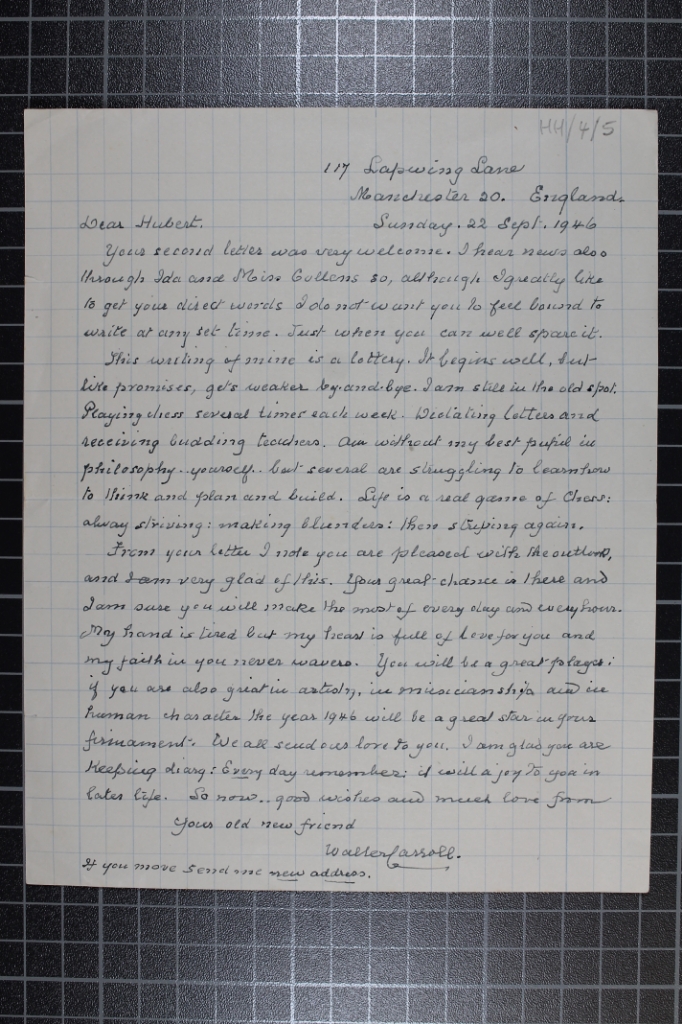 HH/4/5
117 Lapwing Lane
Manchester 20. England.
Dear Hubert. Sunday. 22 Sept. 1946
Your second letter was very welcome. I hear news also
through Ida and Miss Collens so, although I greatly like
to get your direct words I do not want you to feel bound to
write at any set time. Just when you can well spare it.
This writing of mine is a lottery. It begins well, but
like promises, gets weaker by-and-bye. I am still in the old spot.
Playing chess several times each week. Dictating letters and
receiving budding teachers. Am without my best pupil in
philosophy..yourself.. but several are struggling to learn how
to think and plan and build. Life is a real game of Chess:
alway striving: making blunders: then striving again.
From your letter I note you are pleased with the outlook,
and I am very glad of this. Your great chance is there and
I am sure you will make the most of every day and every hour.
My hand is tired but my heart is full of love for you and
my faith in you never wavers. You will be a great player:
if you are also great in artistry, in musicianship and in
human character the year 1946 will be a great star in your
firmament. We all send our love to you. I am glad you are
keeping diary: Every day remember: it will a joy to you in
later life. So now.. good wishes and much love from
Your old new friend
Walter Carroll.
If you move send me new address.